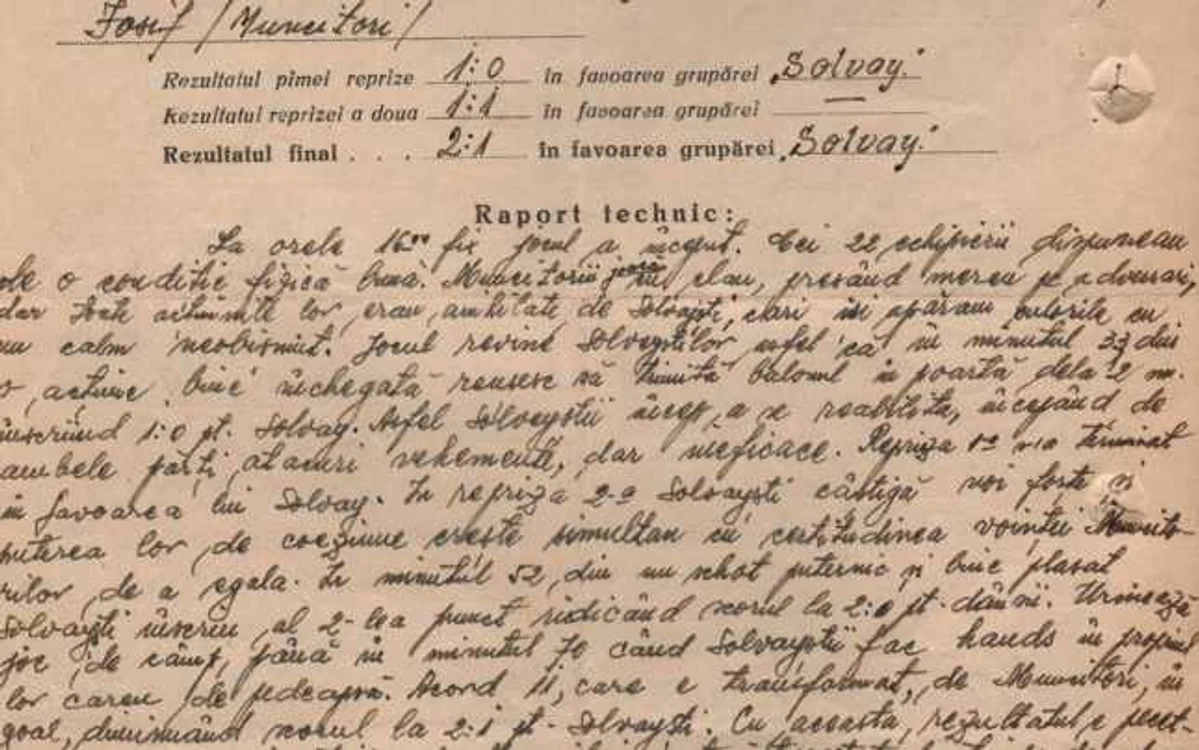 Iosif / Muncitori /
Rezultatul pimei reprize 1:0 în favoarea grupărei „Solvay."
Rezultatul reprizei a doua 1:1 în favoarea grupărei —
Rezultatul final . . . 2:1 în favoarea grupărei „Solvay."
Raport technic:
La orele 16⁰⁰ fix jocul a început. Cei 22 echipieri dispuneau
de o conditie fizică bună. Muncitorii joacă cu elan, presând mereu pe adversari,
dar toate actiunile lor, erau, anihilate de Solvayşti, cari isi apărau culorile cu
un calm neobisnuit. Jocul revine Solvayştilor astfel că in minutul 33 din
o, actiune bine închegată reusesc să trimită balonul in poartă dela 2 m.
înscriind 1:0 pt. Solvay. Astfel Solvayştii încep, a se reabilita, începând de
ambele părţi, atacuri vehemente, dar ineficace. Repriza 1ª s'a terminat
in favoarea lui Solvay. In repriza 2-a Solvayşti câstigă noi forte si
puterea lor, de coeziune creste simultan cu certitudinea vointei Muncito-
rilor, de a egala. In minutul 52, din un schot puternic si bine plasat
Solvayşti înscriu, al 2-lea punct ridicând scorul la 2:0 pt. dânsii. Urmează
joc de câmp, până în minutul 70 când Solvayştii fac hands în propriul
lor careu de pedeapsă. Acord 11, care e transformat, de Muncitori, in
goal, diminuând scorul la 2:1 pt. Solvayşti. Cu aceasta, rezultatul e pecet-